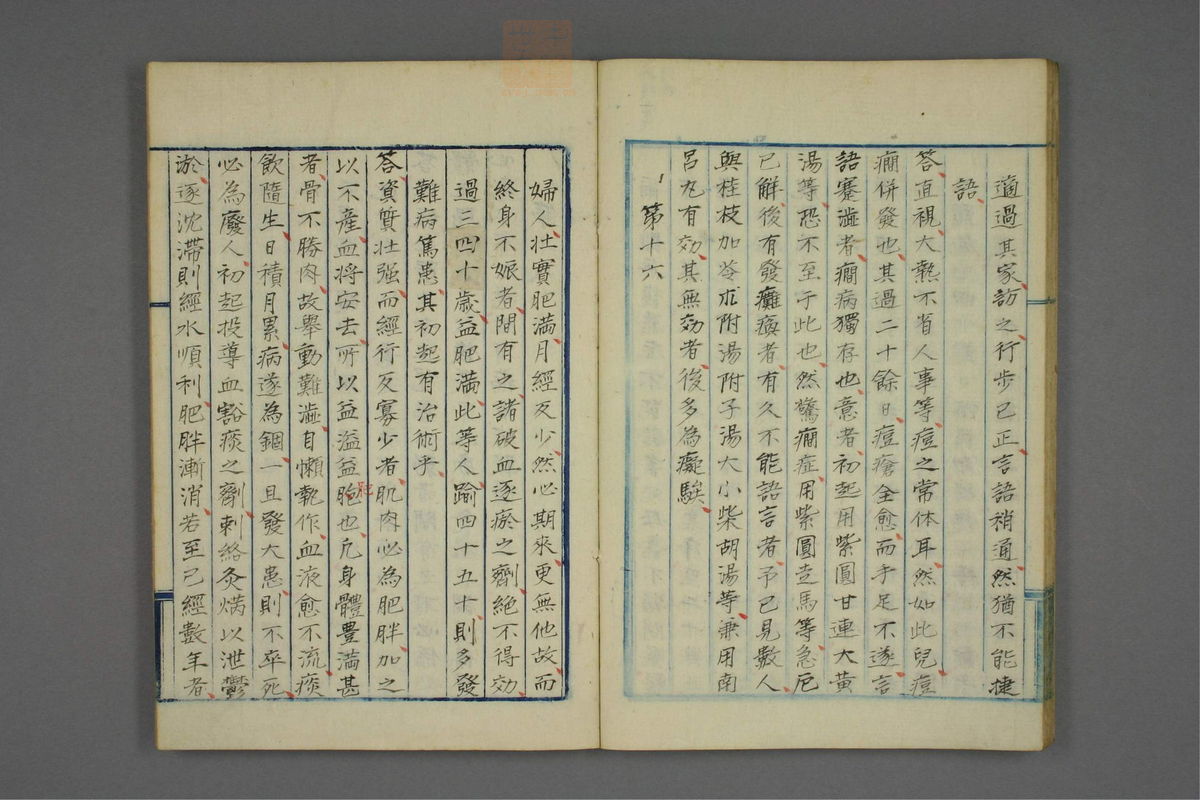 適過其家訪之行步已正言語稍通然猶不能捷
語
答直視大熱不省人事等痘之常体耳然如此兒痘
癇併發也其過二十餘日痘瘡全愈而手足不遂言
語蹇澁者癇病獨存也意者初起用紫圓甘連大黃
湯等恐不至于此也然驚癇症用紫圓走馬等急厄
已解後有發癱瘓者有久不能語言者予已見數人
與桂枝加苓朮附湯附子湯大小柴胡湯等兼用南
呂丸有効其無効者後多為癡騃
第十六
婦人壮實肥満月經反少然必期來更無他故而
終身不娠者間有之諸破血逐瘀之劑絶不得効
過三四十歲益肥満此等人踰四十五十則多發
難病篤患其初起有治術乎
答資質壮强而經行反寡少者肌肉必為肥胖加之
以不産血将安去所以益溢益肥也凢身體豊満甚
者骨不勝肉故擧動難澁自懶執作血液愈不流痰
飲隨生日積月累病遂為錮一旦發大患則不卒死
必為廢人初起投導血豁痰之劑刺絡灸焫以泄鬱
淤逐沈滞則經水順利肥胖漸消若至已經數年者